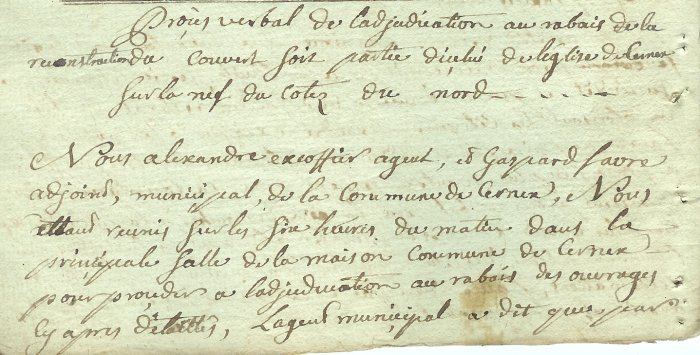 Procès verbal de ladjudication au rabais de la
reconstruction du couvert soit partie dicelui de leglise de Cernex
sur la nef du coter du nord
Nous alexandre excoffier agent, et Gaspard favre
adjoint, municipal, de la Commune de Cernex, Nous
ettant reunis sur les six heures du matin dans la
principale salle de la maison Commune de Cernex
pour proceder a ladjudication au rabais des ouvrages
cy apres détaillés, Lagent municipal a dit que par